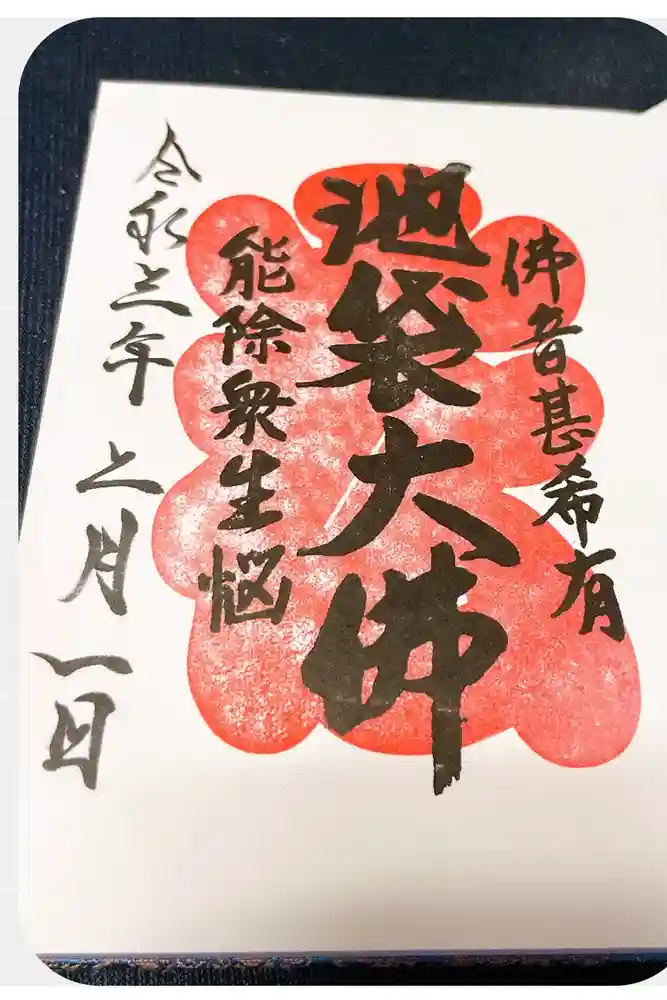 佛音甚希有
池袋大佛
能除衆生悩
令和三年七月一日